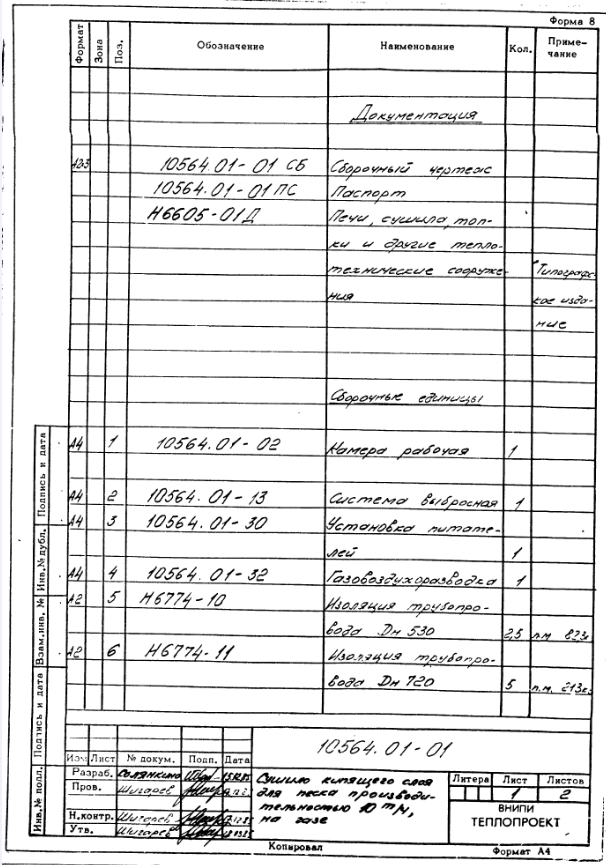 Форма 8
Формат Зона Поз. Обозначение Наименование Кол. Приме-
чание
Документация
10564.01-01 СБ Сборочный чертеж
10564.01-01 ПС Паспорт
Н6605-01Д Печи, сушила, топ-
ки и другие тепло-
технические сооруже- Типографс-
ния кое изда-
ние
Сборочные единицы
А4 1 10564.01-02 Камера рабочая 1
А4 2 10564.01-13 Система выбросная 1
А4 3 10564.01-30 Установка питате-
лей 1
А4 4 10564.01-32 Газовоздухоразводка 1
А2 5 Н6774-10 Изоляция трубопро-
вода Дн 530 2,5 п.м.
А2 6 Н6774-11 Изоляция трубопро-
вода Дн 720 5 п.м. 213кг
Инв.№ подл. Подпись и дата Взам.инв. № Инв.№ дубл. Подпись и дата
10564.01-01
Изм Лист № докум. Подп. Дата
Разраб.
Пров. Шигарев
Н.контр. Шигарев
Утв. Шигарев
Сушило кипящего слоя
для песка производи-
тельностью 10 т/ч,
на газе
Литера Лист Листов
1 2
ВНИПИ
ТЕПЛОПРОЕКТ
Копировал Формат А4